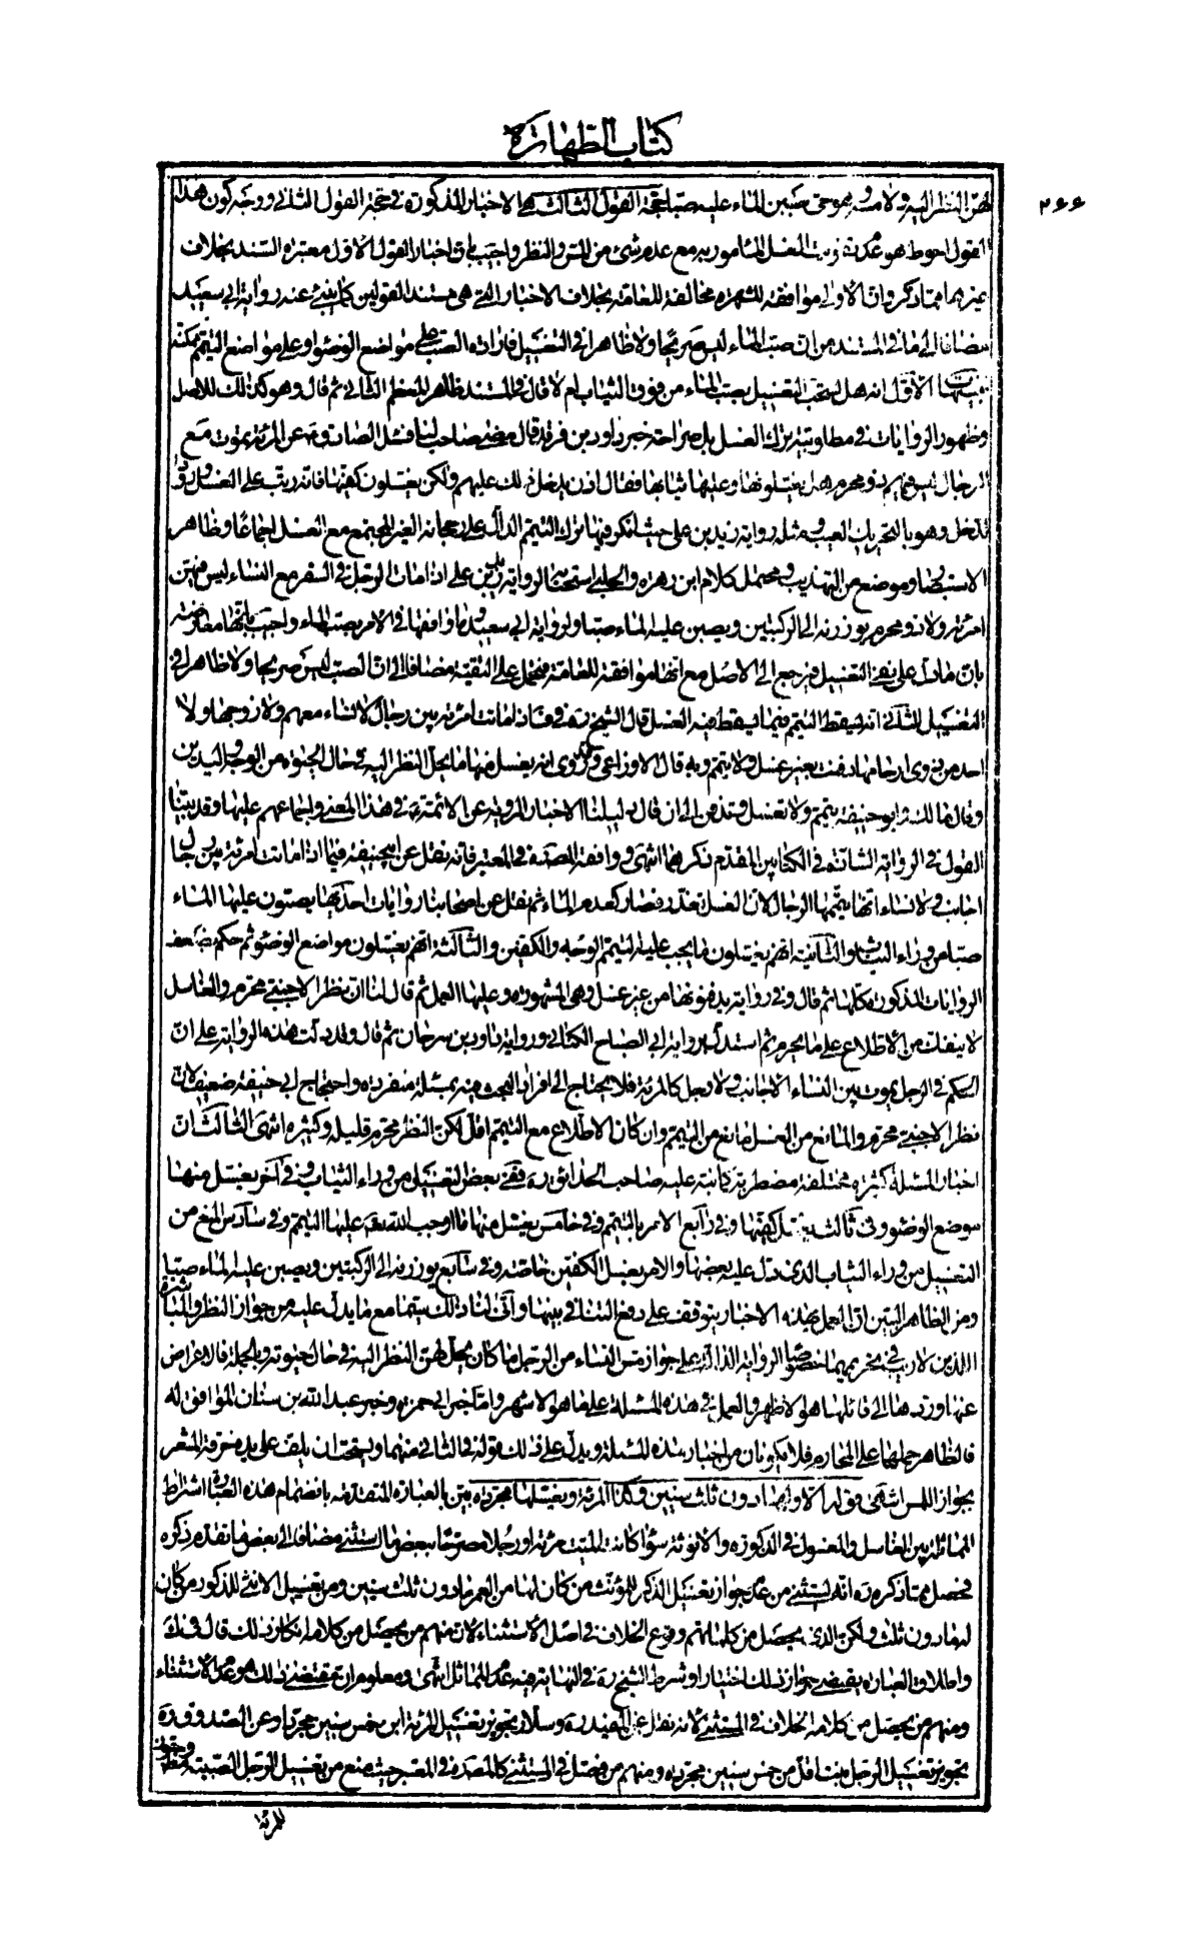 كتاب الطهارة
٢٦٦
لهن النظر اليه ولا مسه وهو حي صببن الماء عليه صبا حجة القول الثالث هي الاخبار المذكورة في حجة القول الثاني ووجه كون هذا
القول احوط هو الغسل المامور به مع عدم شئ من المس والنظر واجيب بان اخبار القول الاول معتبرة السند بخلاف
غيرها مما ذكر وان الاولى موافقة للشهرة مخالفة للعامة بخلاف الاخبار التي هي مستند القولين كما ينبئ عنه رواية ابي سعيد
مضافا الى ما في المستند من ان صب الماء ليس صريحا ولا ظاهرا في التغسيل فارادة الصب على مواضع الوضوء وعلى مواضع التيمم ممكنة
تنبيهات الاول انه هل يستحب التغسيل بصب الماء من فوق الثياب ام لا قال في المستند ظاهر المعظم الثاني ثم قال وهو كذلك للاصل
وظهور الروايات في مطلوبية ترك الغسل بل صراحة خبر داود بن فرقد قال مضى صاحب لنا فسئل الصادق عن المرئة تموت مع
الرجال ليس فيهم ذو محرم هل يغسلونها وعليها ثيابها فقال اذن يدخل ذلك عليهم ولكن يغسلون كفيها فانه رتب على الغسل
الدخل وهو بالتحريك العيب ومثله رواية زيد بن علي حيث انكر فيها ترك التيمم الدال على رجحانه الغير المجتمع مع الغسل اجماعا وظاهر
الاستبصار وموضع من التهذيب ومحتمل كلام ابن زهرة والحلبي استحبابه لرواية زيد بن علي اذا مات الرجل في السفر مع النساء ليس فيهن
امرئته ولا ذو محرم يوزرنه الى الركبتين ويصببن عليه الماء صبا ولرواية ابي سعيد وما وافقها في الامر بصب الماء واجيب بانها معارضة
بان ما دل على نفي التغسيل فيرجع الى الاصل مع انها موافقة للعامة فتحمل على التقية مضافا الى ان الصب ليس صريحا ولا ظاهرا في
التغسيل الثاني انه ليسقط التيمم فيما يسقط فيه الغسل قال الشيخ ره في ف اذا ماتت امرئة بين رجال لا نساء معهم ولا زوجها ولا
احد من ذوي ارحامها دفنت بغير غسل ولا تيمم وبه قال الاوزاعي وقد روى انه يغسل منها ما يحل النظر اليه في حال الحيوة من الوجه واليدين
وقال مالك وابو حنيفة تيمم ولا تغسل الى ان قال دليلنا الاخبار المروية عن الائمة ع في هذا المعنى واجماعهم عليها وقد بينا
القول في الرواية الشاذة في الكتابين المقدم ذكرهما انتهى ووافقه المصنف في المعتبر فانه نقل عن ابي حنيفة فيما اذا ماتت امرئة بين رجال
اجانب ولا نساء انها ييممها الرجال لان الغسل تعذر فصار كعدم الماء ثم نقل عن اصحابنا روايات احديها يصبون عليها الماء
صبا من وراء الثياب والثانية انهم يغسلون ما يجب عليه التيمم الوجه والكفين والثالثة انهم يغسلون مواضع الوضوء ثم حكم بضعف
الروايات المذكورة كلها ثم قال وفي رواية يدفنونها من غير غسل وهي المشهورة وعليها العمل ثم قال لنا ان نظر الاجنبي محرم والغاسل
لا ينفك من الاطلاع على ما يحرم ثم استدل برواية ابي الصباح الكناني ورواية داود بن سرحان ثم قال وقد دلت هذه الرواية على ان
الحكم في الرجل يموت بين النساء الاجانب ولا رجل كالمرئة فلا يحتاج الى افراد البحث فيه بمسئلة منفردة واحتجاج ابي حنيفة ضعيف لان
نظر الاجنبي محرم والمانع من الغسل مانع من التيمم وان كان الاطلاع مع التيمم اقل لكن النظر محرم قليله وكثيره انتهى الثالث ان
اخبار المسئلة كثيرة مختلفة مضطربة كما نبه عليه صاحب الحدائق ره ففي بعض التغسيل من وراء الثياب وفي اخر يغسل منها
موضع الوضوء وفي ثالث يغسل كفيها وفي رابع الامر بالتيمم وفي خامس يغسل منها ما اوجب الله تعالى عليها التيمم وفي سادس المنع من
التغسيل من وراء الثياب الذي دل عليه بعضها والامر بغسل الكفين خاصة وفي سابع يوزرنه الى الركبتين ويصببن عليه الماء صبا
ومن الظاهر البين ان العمل بهذه الاخبار يتوقف على دفع التنافي بينها وانى لنا ذلك سيما مع ما يدل عليه من جواز النظر والمباشرة
اللذين لا ريب في تحريمهما خصوصا الرواية الدالة على جواز مس النساء من الرجل ما كان يحل لهن النظر اليه في حال حيوته وبالجملة فالاعراض
عنها وردها الى قائلها هو الاظهر والعمل في هذه المسئلة على ما هو الاشهر واما خبر ابي حمزة وخبر عبد الله بن سنان الموافق له
فالظاهر حملهما على المحارم فلا يكونان من اخبار هذه المسئلة ويدل على ذلك قوله في الثاني منهما ويستحب ان يلف على يديه خرقة المشعر
بجواز اللمس انتهى قوله الا ولها دون ثلث سنين وكذا المرئة ويغسلها مجردة بين بالعبارة المتقدمة بانضمام هذه العبارة اشتراط
المماثلة بين الغاسل والمغسول في الذكورة والانوثة سواء كان الميت مرئة او رجلا مصرحا ببعض ما استثنى مضافا الى بعض ما تقدم ذكره
فحصل مما ذكره ره انه استثنى من عدم جواز تغسيل الذكر للمؤنث من كان لها من العمر ما دون ثلث سنين ومن تغسيل الانثى للذكور من كان
له ما دون ثلث ولكن الذي يحصل من كلماتهم وقوع الخلاف في اصل الاستثناء لان منهم من يحصل من كلامه انكار ذلك قال في ك
واطلاق العبارة يقتضي جواز ذلك اختيارا وشرط الشيخ ره في النهاية فيه عدم المماثل انتهى ومعلوم ان مقتضى ذلك هو عدم الاستثناء
ومنهم من يحصل من كلامه الخلاف في المستثنى لانه نقل عن المفيد ره وسلار تجويز تغسيل المرئة ابن خمس سنين مجردا وعن الصدوق ره
تجويز تغسيل الرجل بنت اقل من خمس سنين مجردة ومنهم من فصل في المستثنى كالمصنف في المعتبر حيث منع من تغسيل الرجل الصبية وجوز
للمرئة